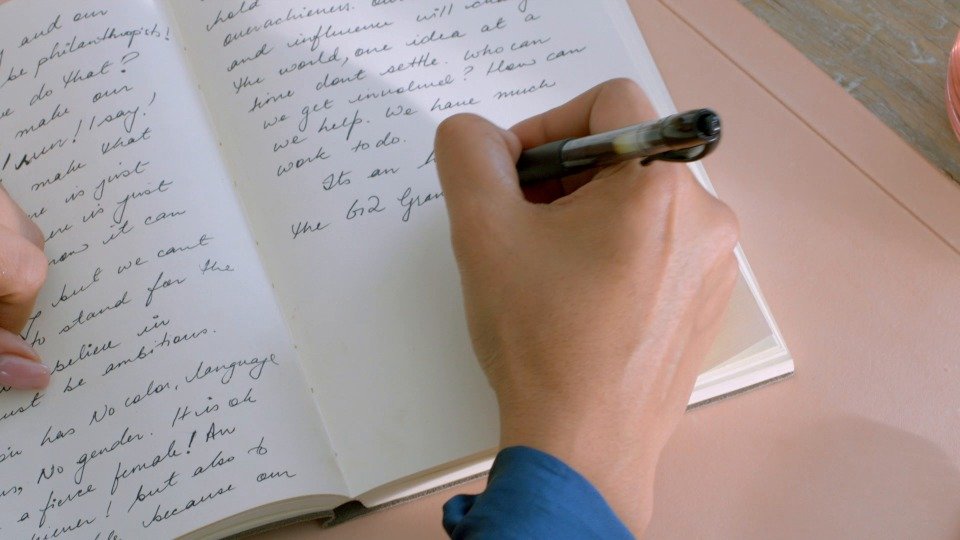 and our
be philanthropists!
do that?
make our
! I say,
make that
is just
is just
now it can
but we cant
to stand for the
believe in
be ambitious.
has No color, language
No gender. It is ok
a fierce female! An
! but also to
because our
hold
overachievers.
and influence will
the world, one idea at a
time dont settle. Who can
we get involved? How can
we help. We have much
work to do.
Its an
the G12 Gran